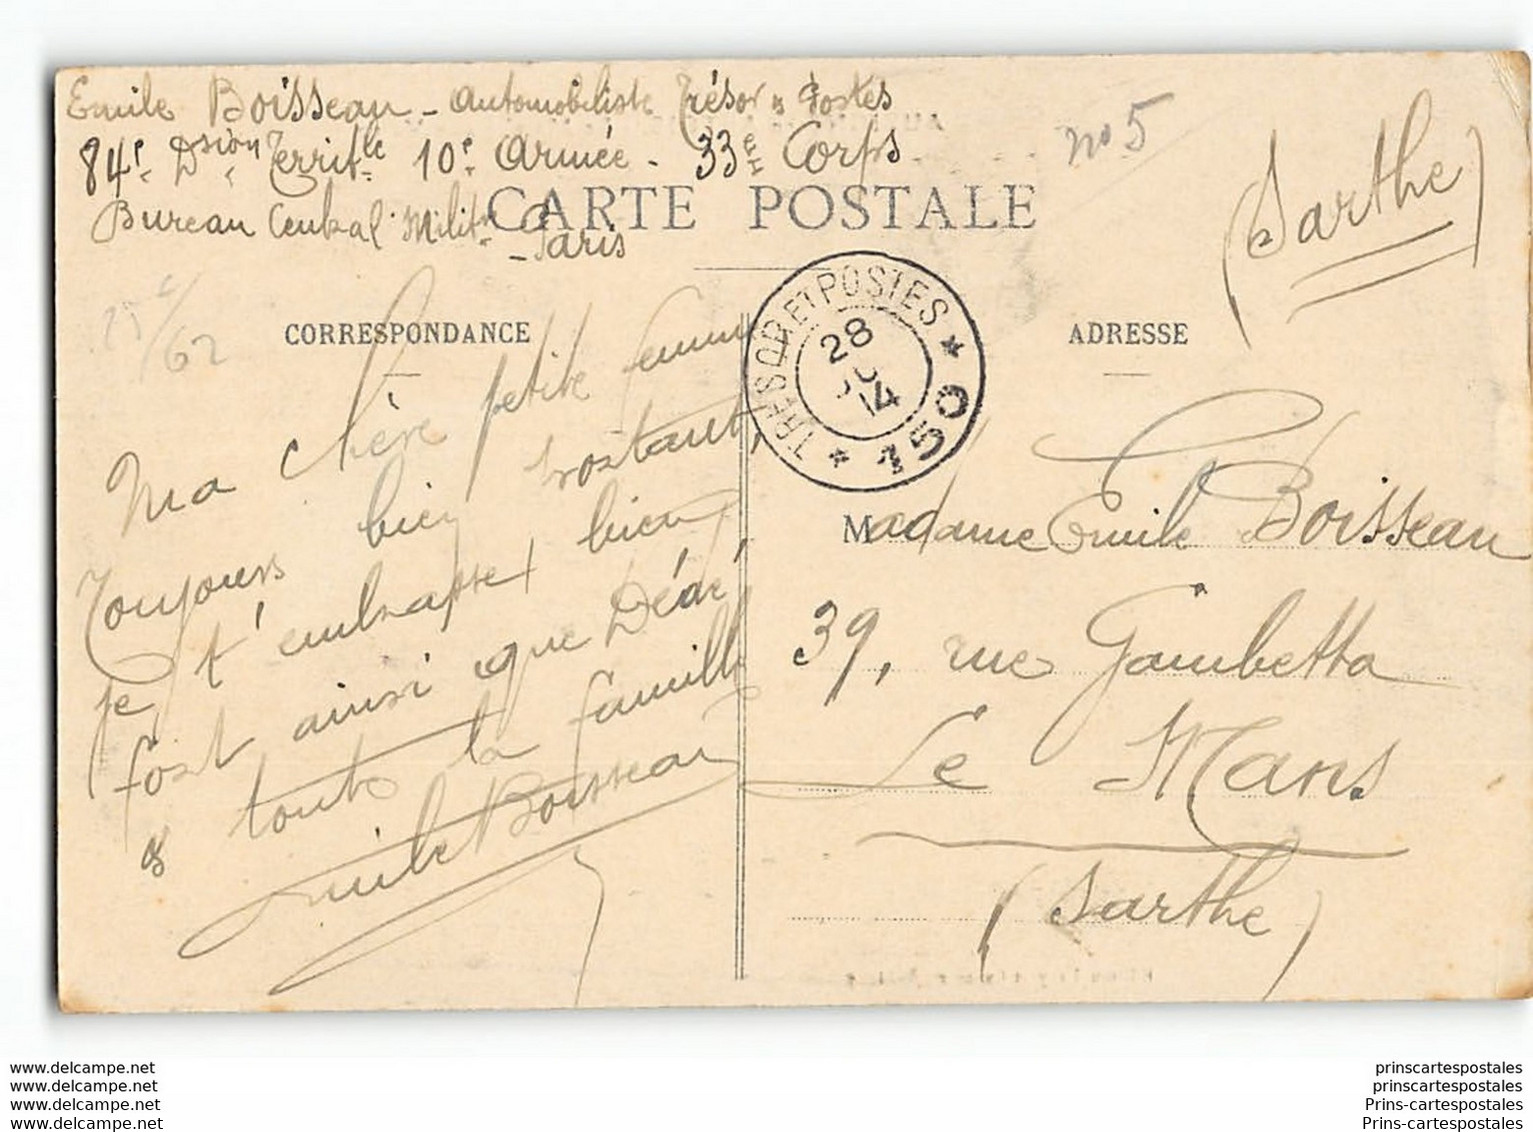 Emile Boisseau - Automobiliste Trésor & Postes
84e Dsion Territle 10e Armée - 33e Corps
Bureau Central Militre - Paris
no 5
(Sarthe)
CARTE POSTALE
TRESOR ET POSTES
28
14
* 150 *
62
CORRESPONDANCE
ADRESSE
Ma chère petite femme
Toujours bien portant,
je t'embrasse bien
fort ainsi que Dédé
& toute la famille
Emile Boisseau
Madame Emile Boisseau
39, rue Gambetta
Le Mans
(Sarthe)
www.delcampe.net
www.delcampe.net
www.delcampe.net
www.delcampe.net
prinscartespostales
prinscartespostales
Prins-cartespostales
Prins-cartespostales